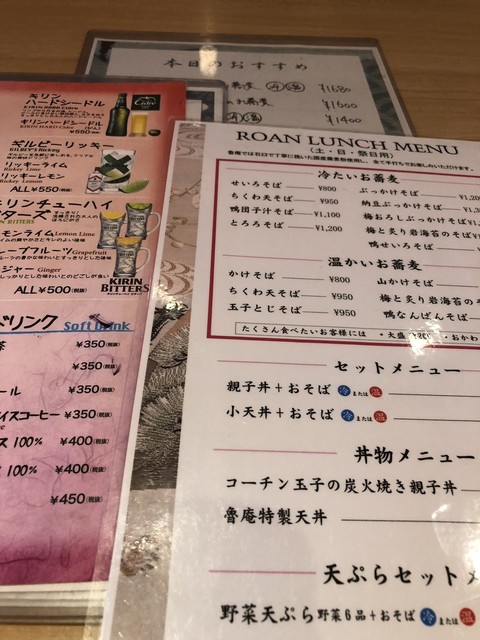 本日のおすすめ
¥1680
¥1600
¥1400
キリン
ハードシードル
KIRIN HARD Cidre
キリンハードシードル
¥550
ギルビーリッキー
GILBEY'S Rickey
リッキーライム
Rickey Lime
リッキーレモン
Rickey Lemon
ALL¥550(税抜)
キリンチューハイ
BITTERS
モンライム Lemon Lime
ープフルーツ Grapefruit
ジャー Ginger
ALL¥500(税抜)
KIRIN
BITTERS
ドリンク Soft Drink
茶 ¥350(税抜)
¥350(税抜)
ール ¥350(税抜)
イスコーヒー ¥350(税抜)
ス 100% ¥400(税抜)
ス 100% ¥400(税抜)
¥450(税抜)
ROAN LUNCH MENU
(土・日・祭日用)
冷たいお蕎麦
せいろそば ¥800
ちくわ天そば ¥950
鴨団子汁そば ¥1,100
とろろそば ¥1,200
ぶっかけそば
納豆ぶっかけそば
梅おろしぶっかけそば
梅と炙り岩海苔のそば
鴨せいろそば
温かいお蕎麦
かけそば ¥800
ちくわ天そば ¥950
玉子とじそば ¥950
山かけそば
梅と炙り岩海苔の
鴨なんばんそば
たくさん食べたいお客様には ・大盛 ・おかわ
セットメニュー
親子丼+おそば 冷または温
小天丼+おそば 冷または温
丼物メニュー
コーチン玉子の炭火焼き親子丼
魯庵特製天丼
天ぷらセットメ
野菜天ぷら野菜6品+おそば 冷または温